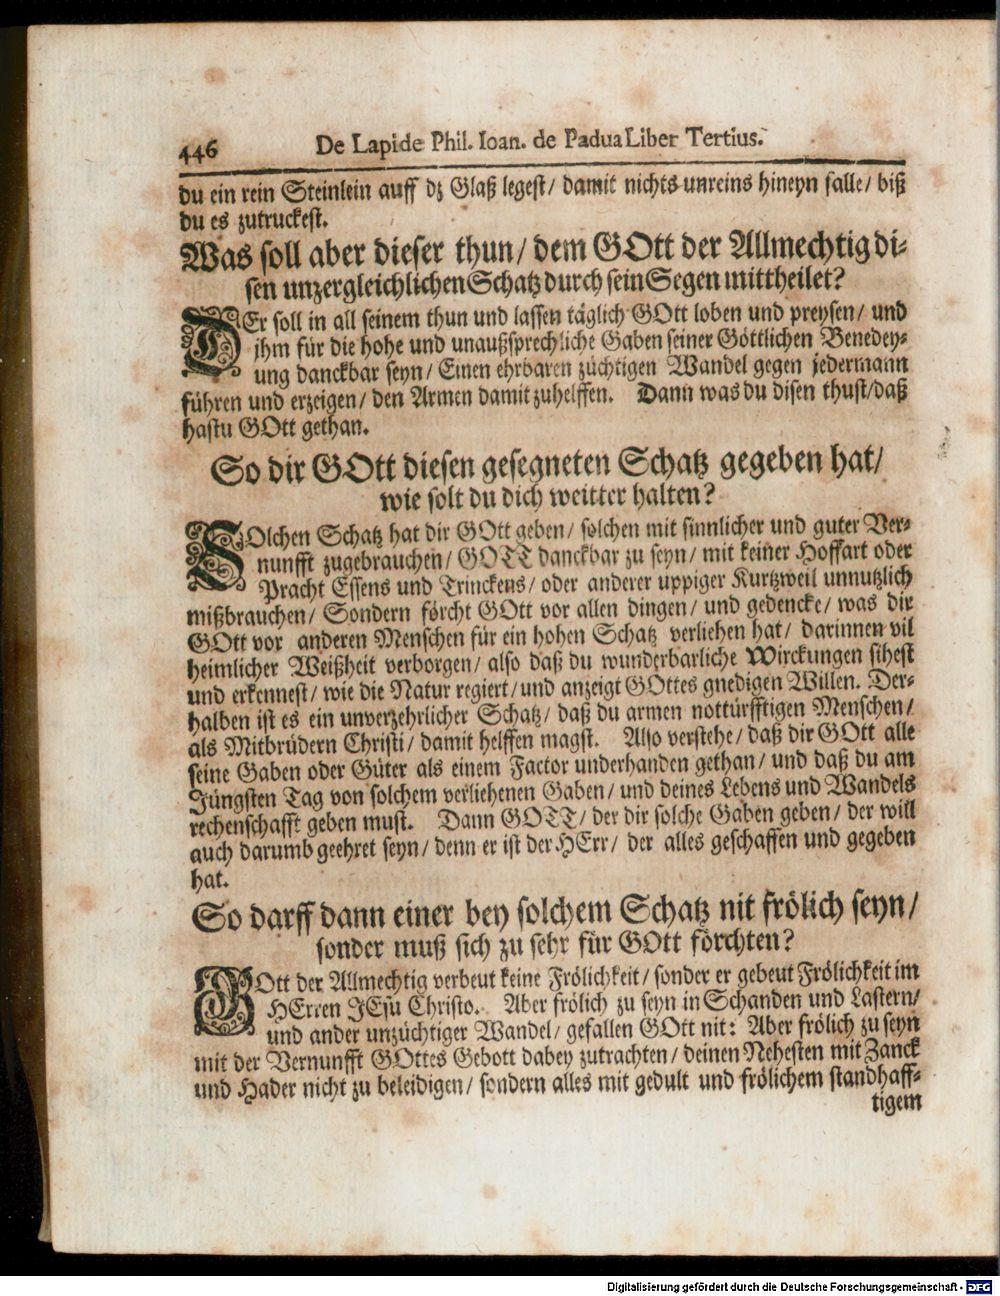 446 De Lapide Phil. Ioan. de Padua Liber Tertius.
du ein rein Steinlein auff dz Glaß legest/ damit nichts unreins hineyn falle/ biß
du es zutruckest.
Was soll aber dieser thun/ dem GOtt der Allmechtig di-
sen unzergleichlichen Schatz durch sein Segen mittheilet?
DEr soll in all seinem thun und lassen täglich GOtt loben und preysen/ und
ihm für die hohe und unaußsprechliche Gaben seiner Göttlichen Benedey-
ung danckbar seyn/ Einen ehrbaren züchtigen Wandel gegen jedermann
führen und erzeigen/ den Armen damit zuhelffen. Dann was du disen thust/ daß
hastu GOtt gethan.
So dir GOtt diesen gesegneten Schatz gegeben hat/
wie solt du dich weitter halten?
SOlchen Schatz hat dir GOtt geben/ solchen mit sinnlicher und guter Ver-
nunfft zugebrauchen/ GOTT danckbar zu seyn/ mit keiner Hoffart oder
Pracht Essens und Trinckens/ oder anderer uppiger Kurtzweil unnutzlich
mißbrauchen/ Sondern förcht GOtt vor allen dingen/ und gedencke/ was dir
GOtt vor anderen Menschen für ein hohen Schatz verliehen hat/ darinnen vil
heimlicher Weißheit verborgen/ also daß du wunderbarliche Wirckungen sihest
und erkennest/ wie die Natur regiert/ und anzeigt GOttes gnedigen Willen. Der-
halben ist es ein unverzehrlicher Schatz/ daß du armen nottürfftigen Menschen/
als Mitbrüdern Christi/ damit helffen magst. Also verstehe/ daß dir GOtt alle
seine Gaben oder Güter als einem Factor underhanden gethan/ und daß du am
Jüngsten Tag von solchem verliehenen Gaben/ und deines Lebens und Wandels
rechenschafft geben must. Dann GOTT/ der dir solche Gaben geben/ der will
auch darumb geehret seyn/ denn er ist der HErr/ der alles geschaffen und gegeben
hat.
So darff dann einer bey solchem Schatz nit frölich seyn/
sonder muß sich zu sehr für GOtt förchten?
GOtt der Allmechtig verbeut keine Frölichkeit/ sonder er gebeut Frölichkeit im
HErren JEsu Christo. Aber frölich zu seyn in Schanden und Lastern/
und ander unzüchtiger Wandel/ gefallen GOtt nit: Aber frölich zu seyn
mit der Vernunfft GOttes Gebott dabey zutrachten/ deinen Nehesten mit Zanck
und Hader nicht zu beleidigen/ sondern alles mit gedult und frölichem standhaff-
tigem
Digitalisierung gefördert durch die Deutsche Forschungsgemeinschaft - DFG